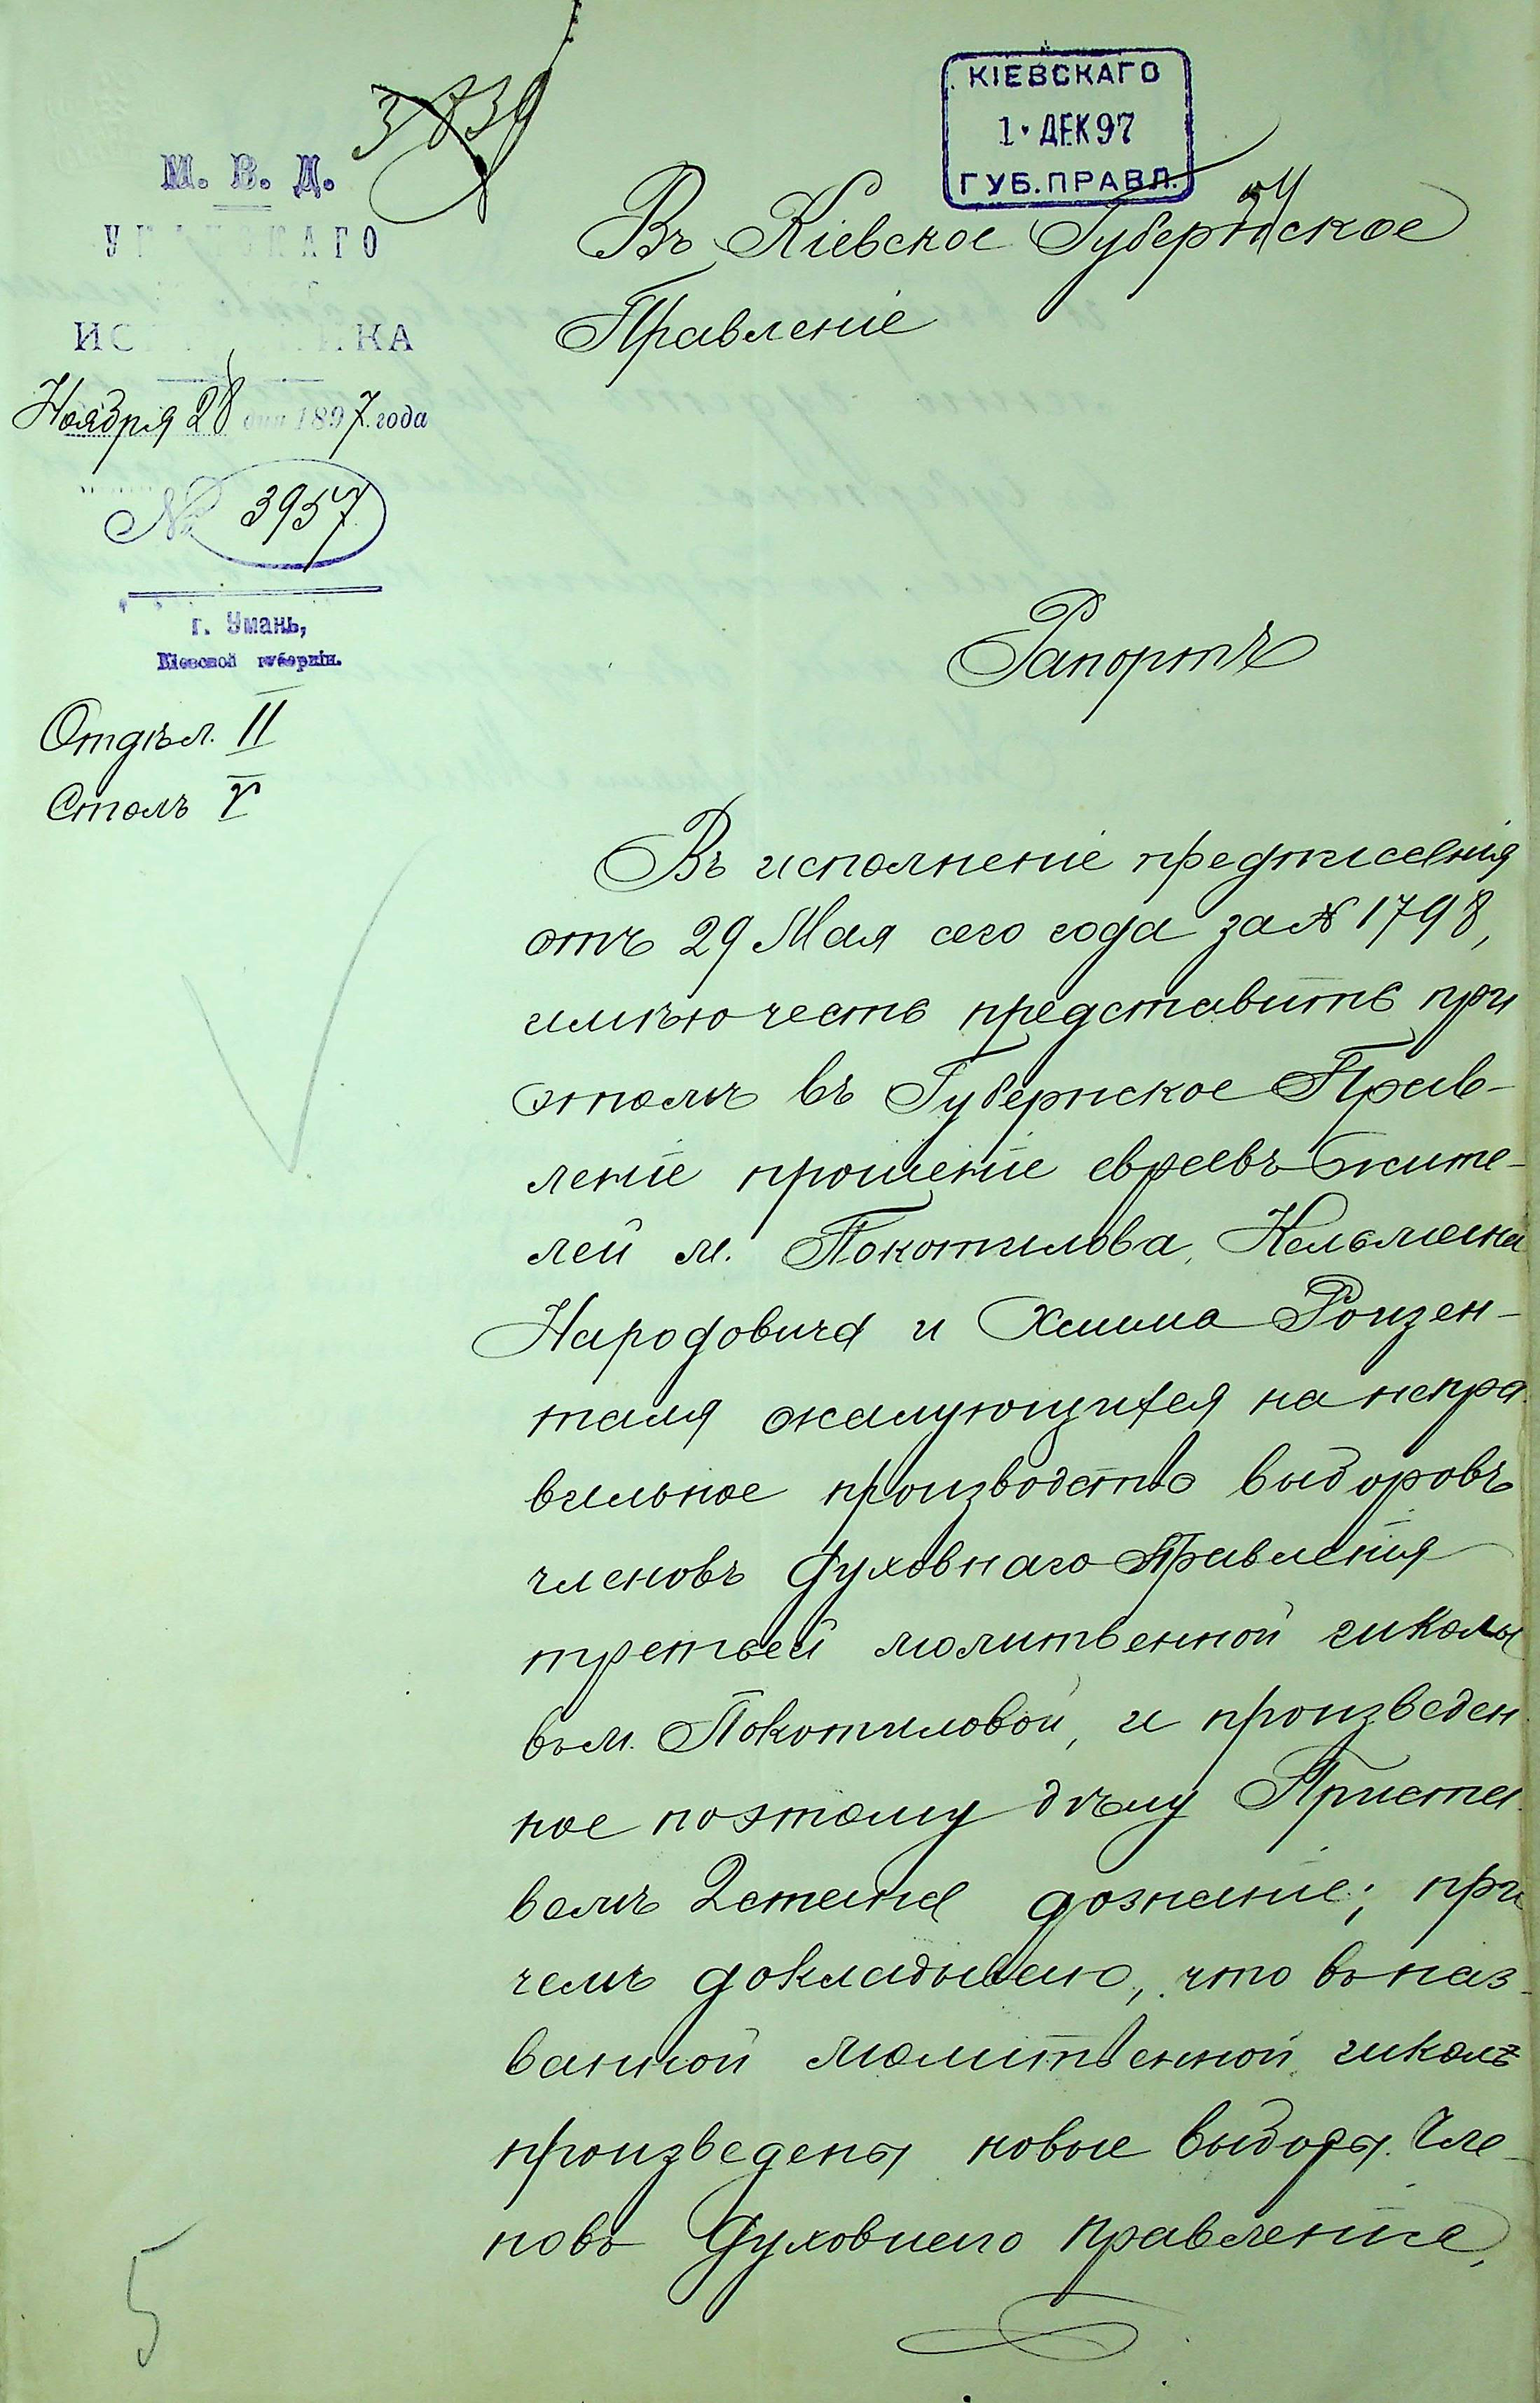 3839
КІЕВСКАГО
1 ДЕК 97
ГУБ. ПРАВЛ.
М. В. Д.
Ноября 28 дня 1897 года
№ 3957
г. Умань,
Кіевской губерніи.
Отдѣл. II
Столъ V
Въ Кіевское Губернское
Правленіе
Рапортъ
Въ исполненіе предписанія
отъ 29 Мая сего года за № 1798,
имѣю честь представить при
этомъ въ Губернское Прав-
леніе прошеніе евреевъ жите-
лей м. Покотилова, Кельмана
Народовича и Хаима Ройзен-
таля жалующихся на непра
вильное производство выборовъ
членовъ Духовнаго Правленія
третьей молитвенной школы
въ м. Покотиловой, и произведен
ное по этому дѣлу Приста
вомъ 2 стана дознаніе; при
чемъ докладываю, что въ наз-
ванной молитвенной школѣ
произведены новые выборы Чле-
новъ Духовнаго Правленія,
5